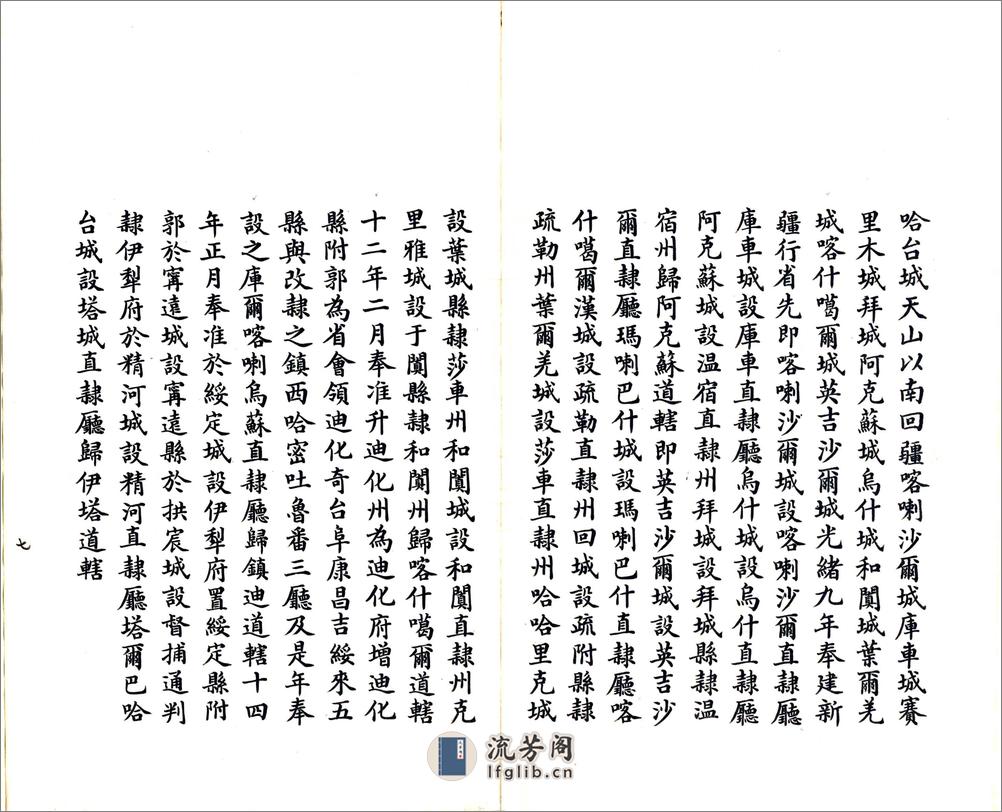 哈台城天山以南回疆喀喇沙爾城庫車城賽
里木城拜城阿克蘇城烏什城和闐城葉爾羌
城喀什噶爾城英吉沙爾城光緒九年奉建新
疆行省先即喀喇沙爾城設喀喇沙爾直隸廳
庫車城設庫車直隸廳烏什城設烏什直隸廳
阿克蘇城設温宿直隸州拜城設拜城縣隸温
宿州歸阿克蘇道轄即英吉沙爾城設英吉沙
爾直隸廳瑪喇巴什城設瑪喇巴什直隸廳喀
什噶爾漢城設疏勒直隸州回城設疏附縣隸
疏勒州葉爾羌城設莎車直隸州哈哈里克城
設葉城縣隸莎車州和闐城設和闐直隸州克
里雅城設于闐縣隸和闐州歸喀什噶爾道轄
十二年二月奉准升迪化州為迪化府增迪化
縣附郭為省會領迪化奇台阜康昌吉綏來五
縣與改隸之鎮西哈密吐魯番三廳及是年奉
設之庫爾喀喇烏蘇直隸廳歸鎮迪道轄十四
年正月奉准於綏定城設伊犁府置綏定縣附
郭於寧遠城設寧遠縣於拱宸城設督捕通判
隸伊犁府於精河城設精河直隸廳塔爾巴哈
台城設塔城直隸廳歸伊塔道轄
七
流芳阁
lfglib.cn